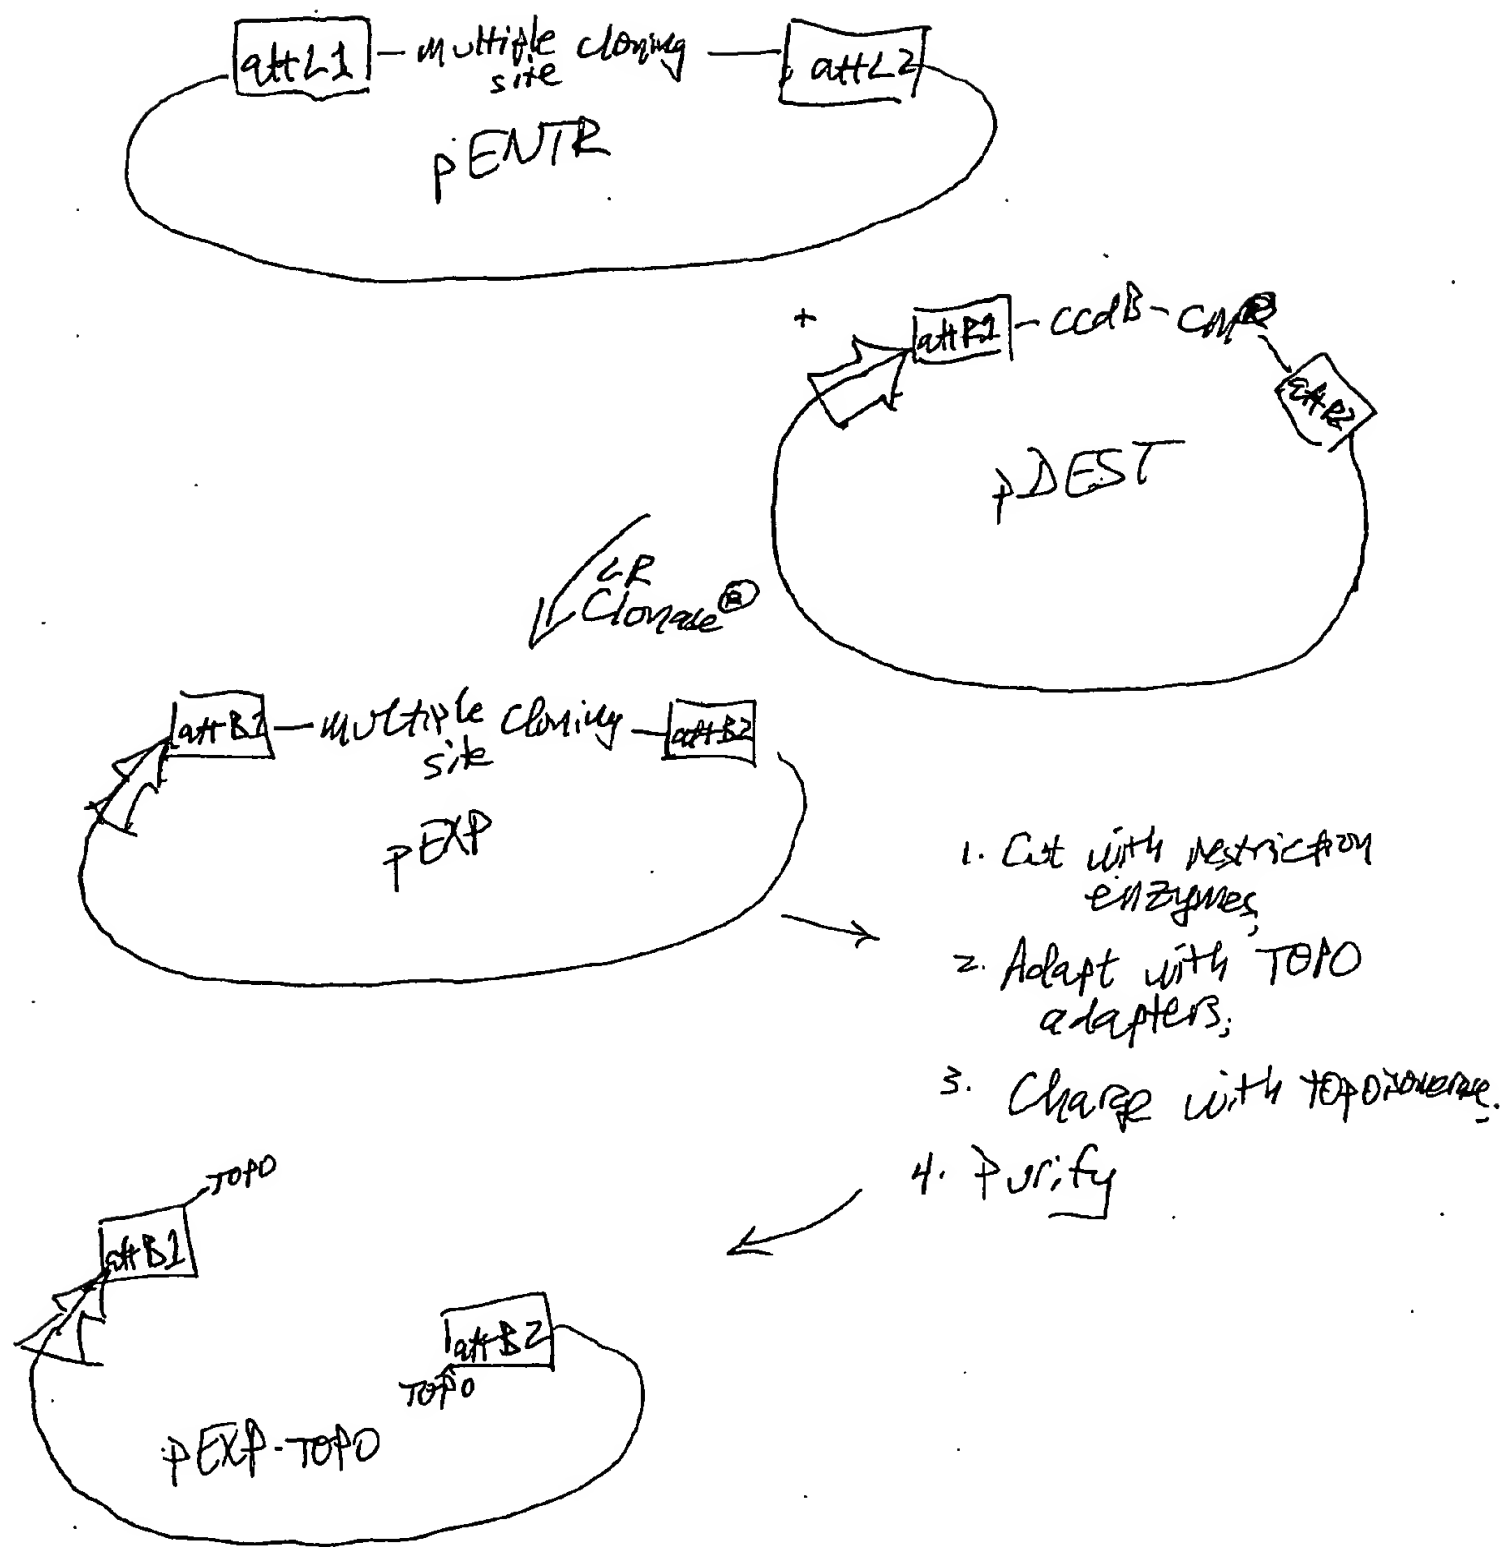 attL1 – multiple cloning — attL2
site
pENTR
+
attR1 – ccdB – CmR
attR2
pDEST
LR
Clonase®
attB1 – multiple cloning – attB2
site
pEXP
1. Cut with restriction
enzymes;
2. Adapt with TOPO
adapters;
3. Charge with topoisomerase.
4. Purify
TOPO
attB1
attB2
TOPO
pEXP-TOPO